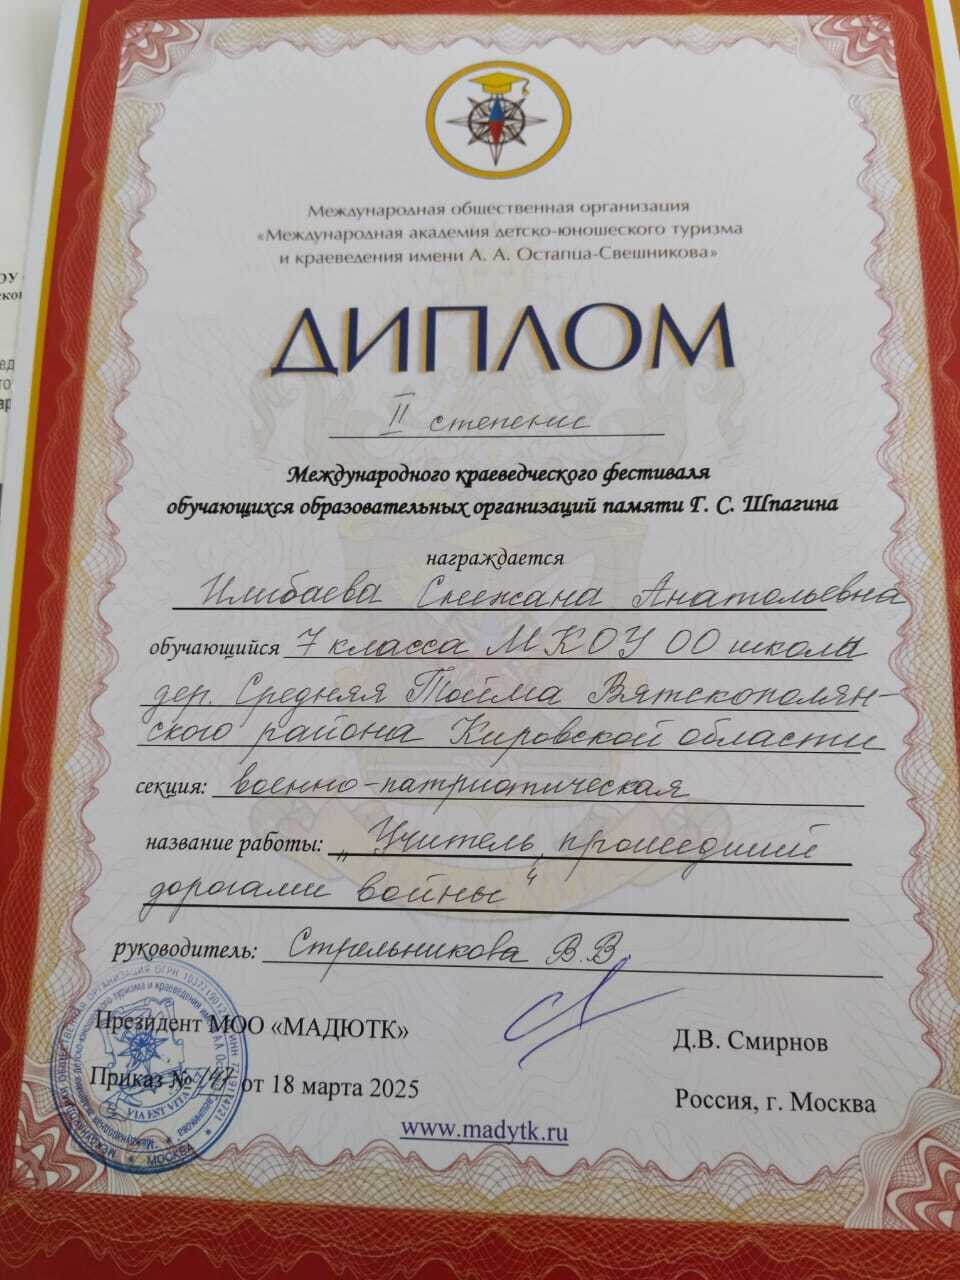 Международная общественная организация
«Международная академия детско-юношеского туризма
и краеведения имени А. А. Остапца-Свешникова»
ДИПЛОМ
II степени
Международного краеведческого фестиваля
обучающихся образовательных организаций памяти Г. С. Шпагина
награждается
Илибаева Снежана Анатольевна
обучающийся 7 класса МКОУ ОО школы
дер. Средняя Тойма Вятскополян-
ского района Кировской области
секция: военно-патриотическая
название работы: „Учитель, прошедший
дорогами войны"
руководитель: Стрельникова В.В.
Президент МОО «МАДЮТК»
Д.В. Смирнов
Приказ № от 18 марта 2025
Россия, г. Москва
www.madytk.ru
VIA EST VITA
МОСКВА